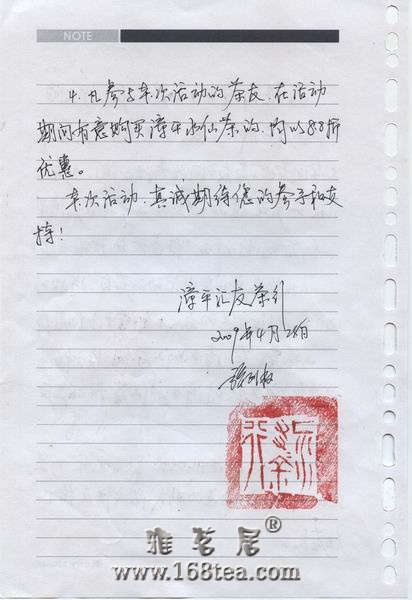 NOTE
4.凡参与本次活动的茶友.在活动
期间有意购买漳平水仙茶的.均以88折
优惠。
本次活动.真诚期待您的参予和支
持!
漳平汇友茶行
2009年4月28日
雅茗居®
www.168tea.com